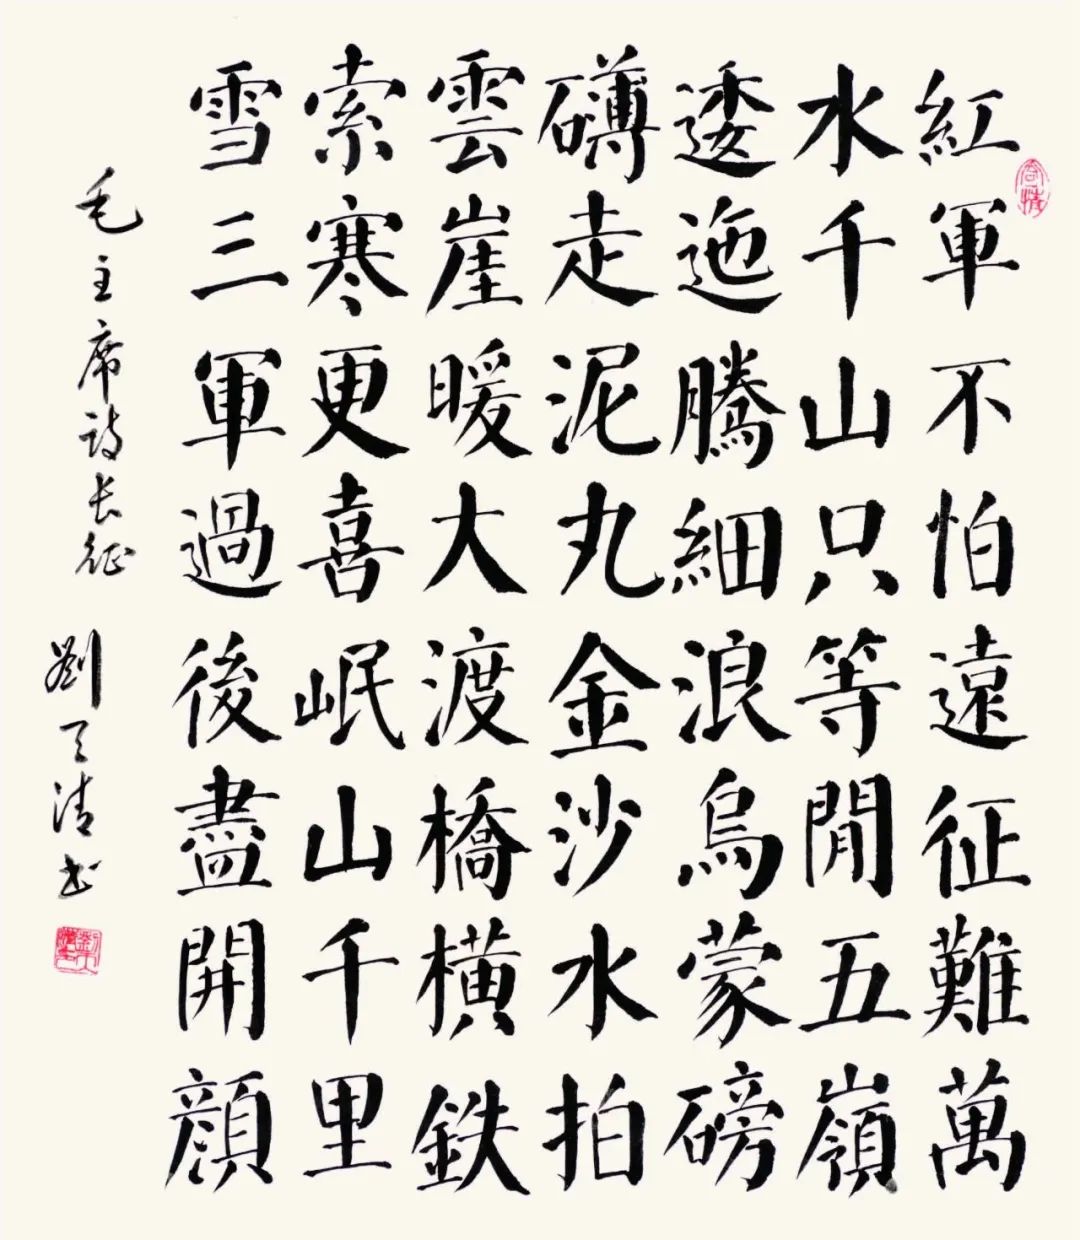 紅軍不怕遠征難萬
水千山只等閒五嶺
逶迤騰細浪烏蒙磅
礴走泥丸金沙水拍
雲崖暖大渡橋橫鉄
索寒更喜岷山千里
雪三軍過後盡開顏
毛主席诗长征
劉天清书